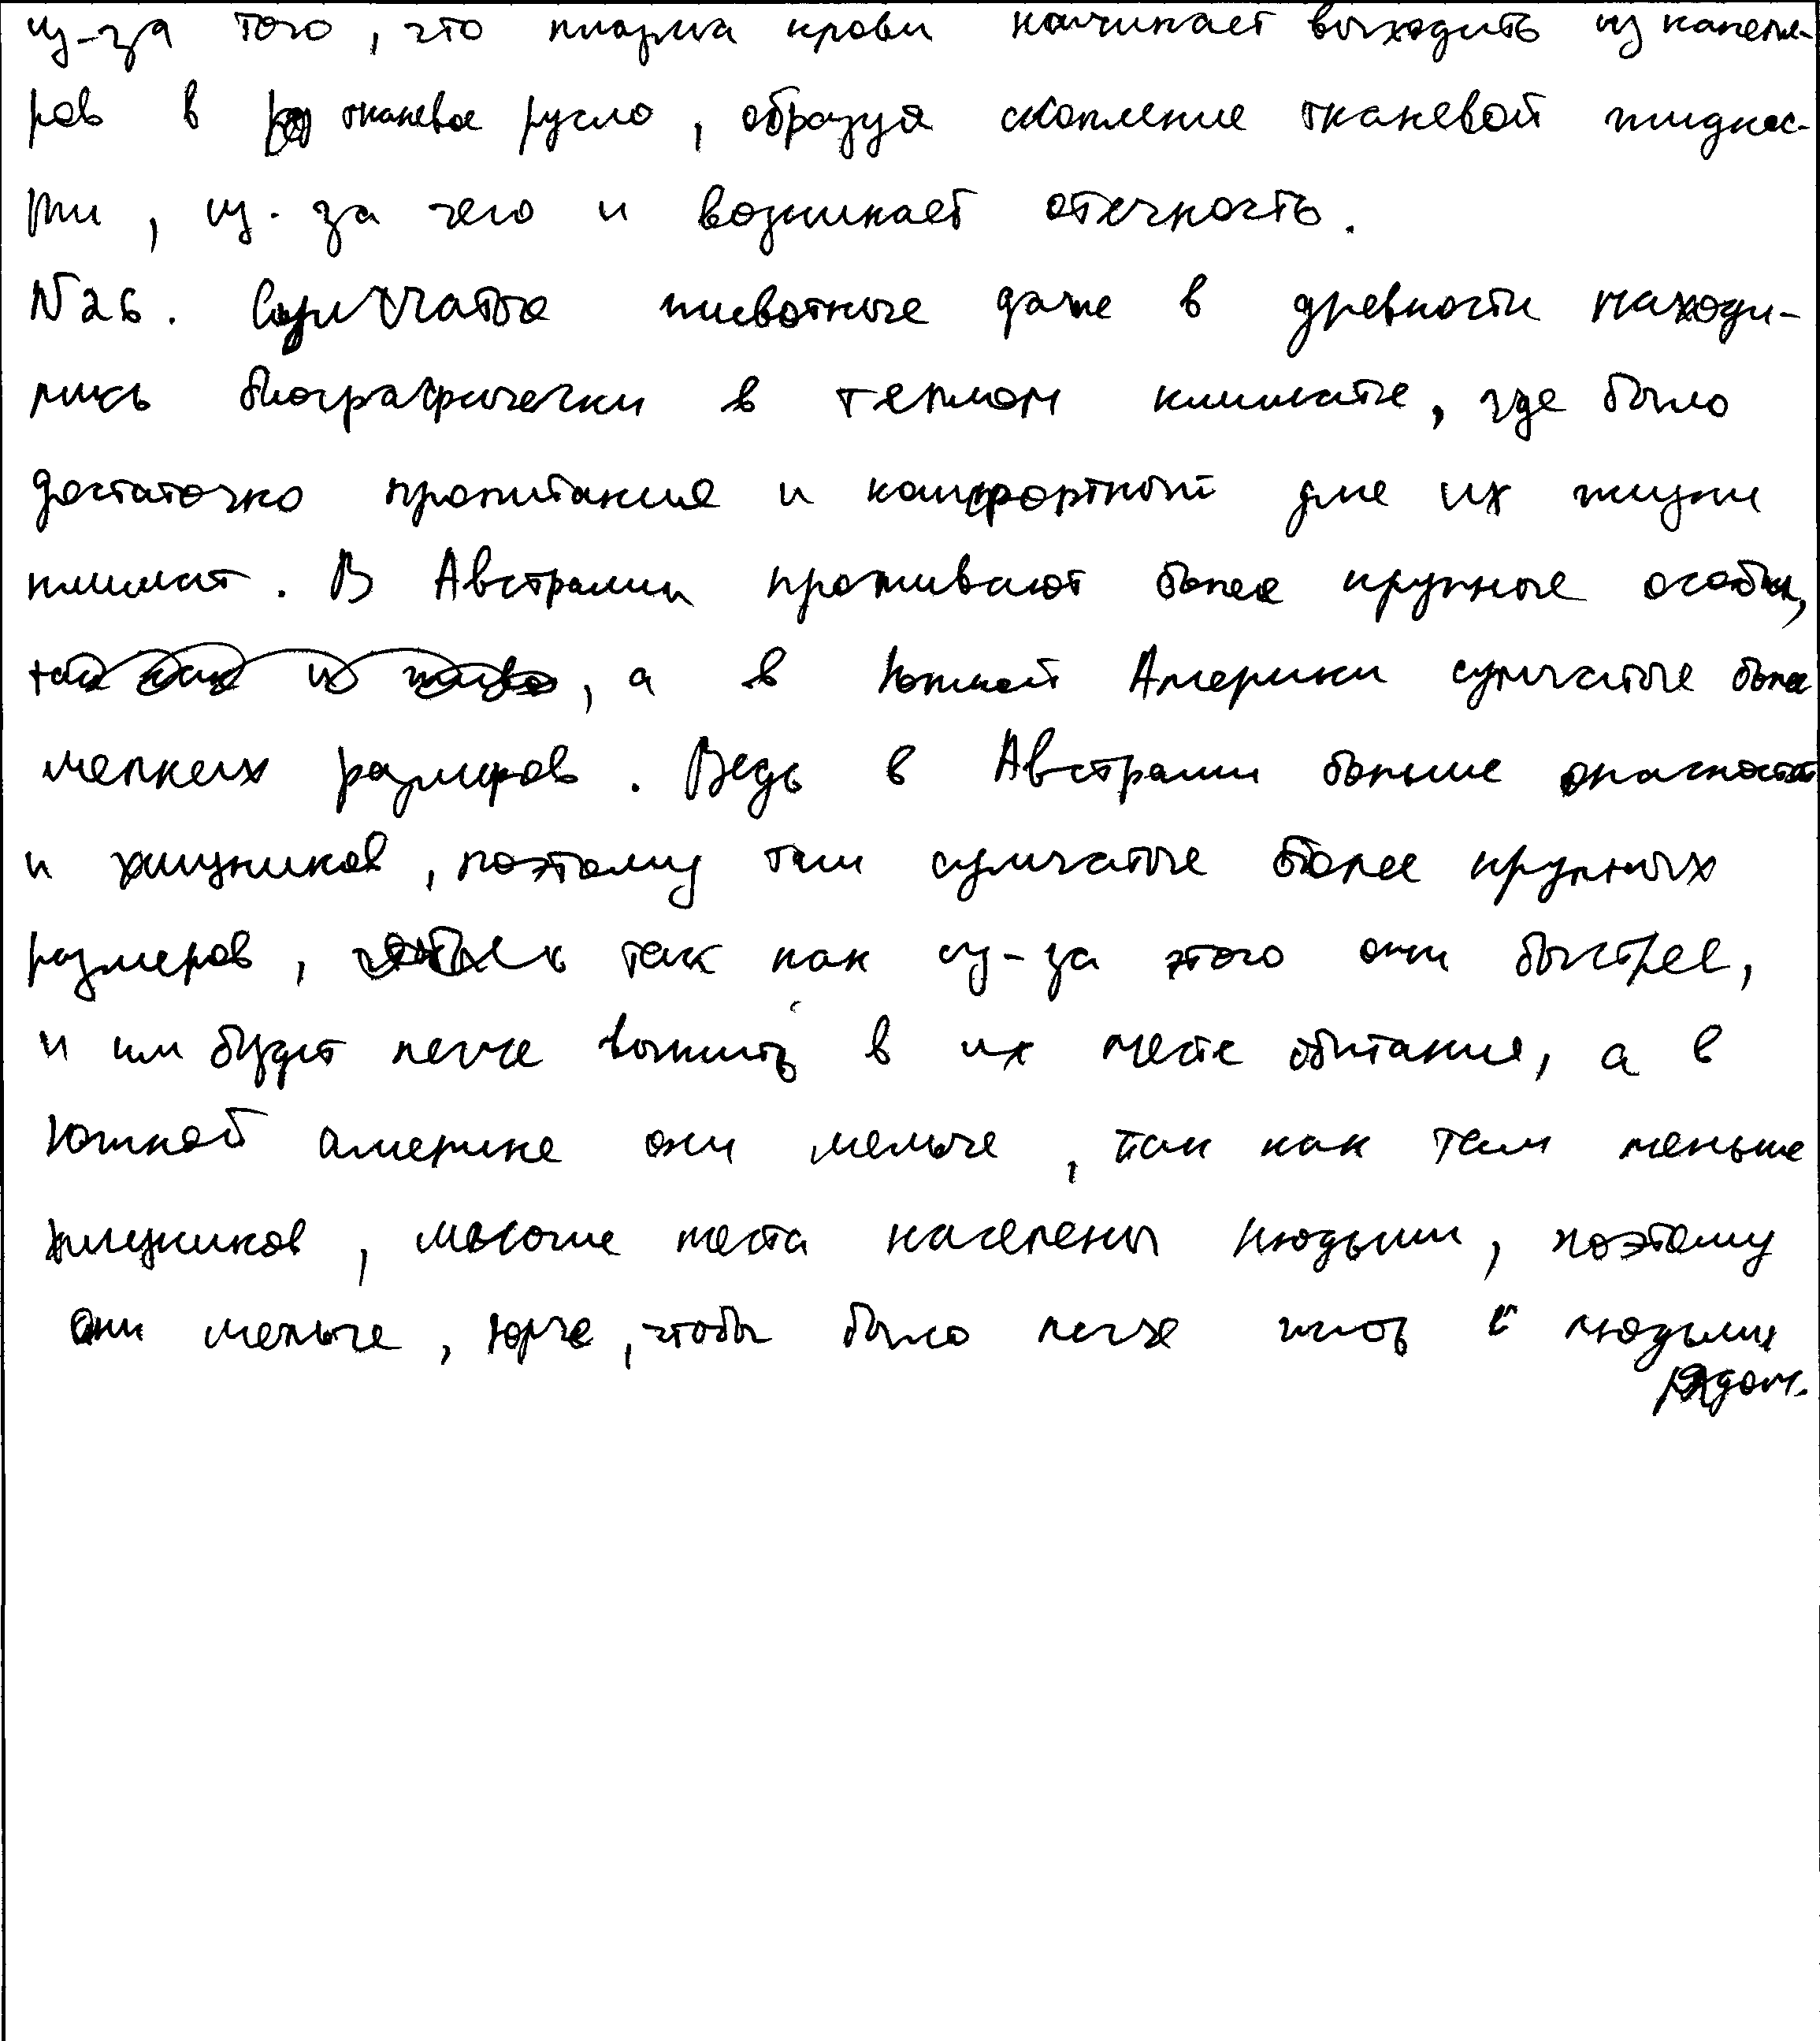 из-за того, что плазма крови начинает выходить из капеля-
ров в тканевое русло, образуя скопление тканевой жиднос-
ти, из-за чего и возникает отечность.
N26. Сумчатые животные даже в древности находи-
лись биографически в теплом климате, где было
достаточно пропитания и комфортный для их жизни
климат. В Австралии проживают более крупные особи,
так как и живо, а в Южной Америки сумчатые более
мелких размеров. Ведь в Австралии больше опасностей
и хищников, поэтому там сумчатые более крупных
размеров, так как из-за этого они быстрее,
и им будет легче выжить в их месте обитания, а в
Южной америке они мельче, так как там меньше
хищников, многие места населены людьми, поэтому
они мельче, юрче, чтобы было легче жить с людьми
рядом.